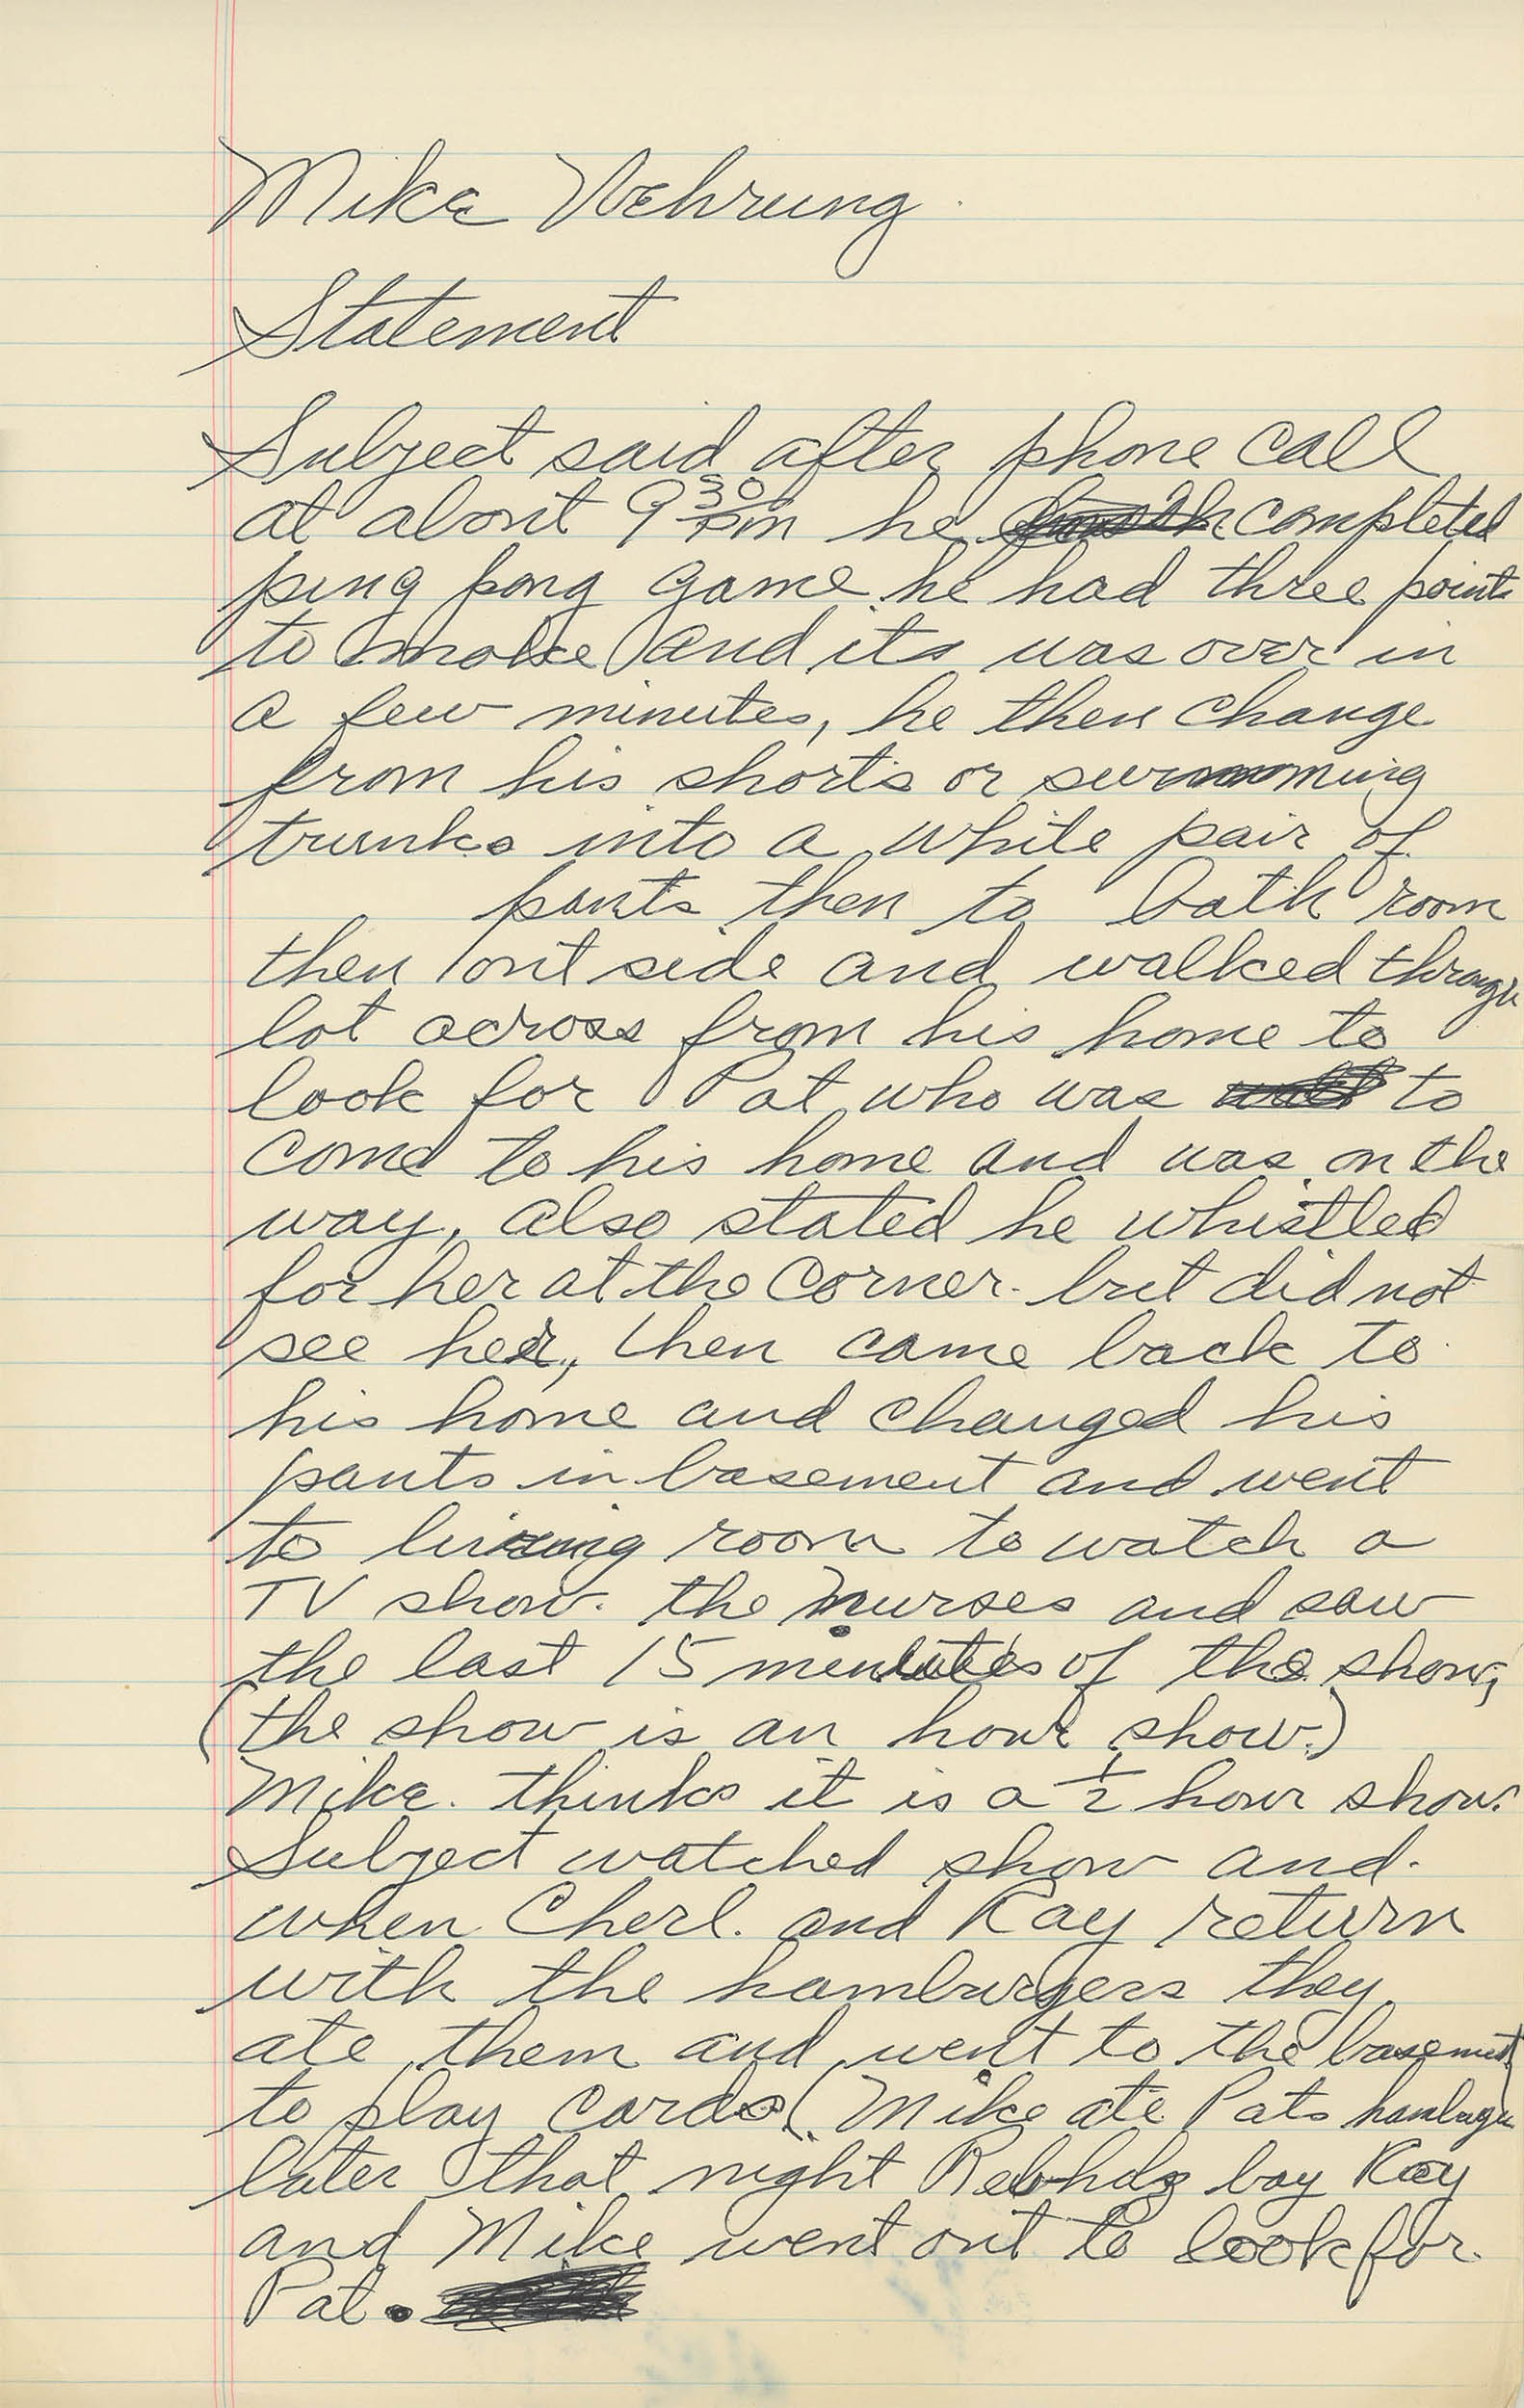 Mike Wehrung
Statement
Subject said after phone call
at about 9 30 pm he completed
ping pong game he had three points
to make and its was over in
a few minutes, he then change
from his shorts or swimming
trunks into a white pair of
pants then to bath room
then out side and walked through
lot across from his home to
look for Pat who was to
come to his home and was on the
way, also stated he whistled
for her at the corner. but did not
see her, then came back to
his home and changed his
pants in basement and went
to living room to watch a
TV show. the nurses and saw
the last 15 minutes of the show;
(the show is an hour show.)
Mike. thinks it is a 1/2 hour show.
Subject watched show and.
when Cherl. and Ray return
with the hamburgers they
ate them and went to the basement
to play cards (Mike ate Pats
later that night boy Ray
and Mike went out to look for
Pat.